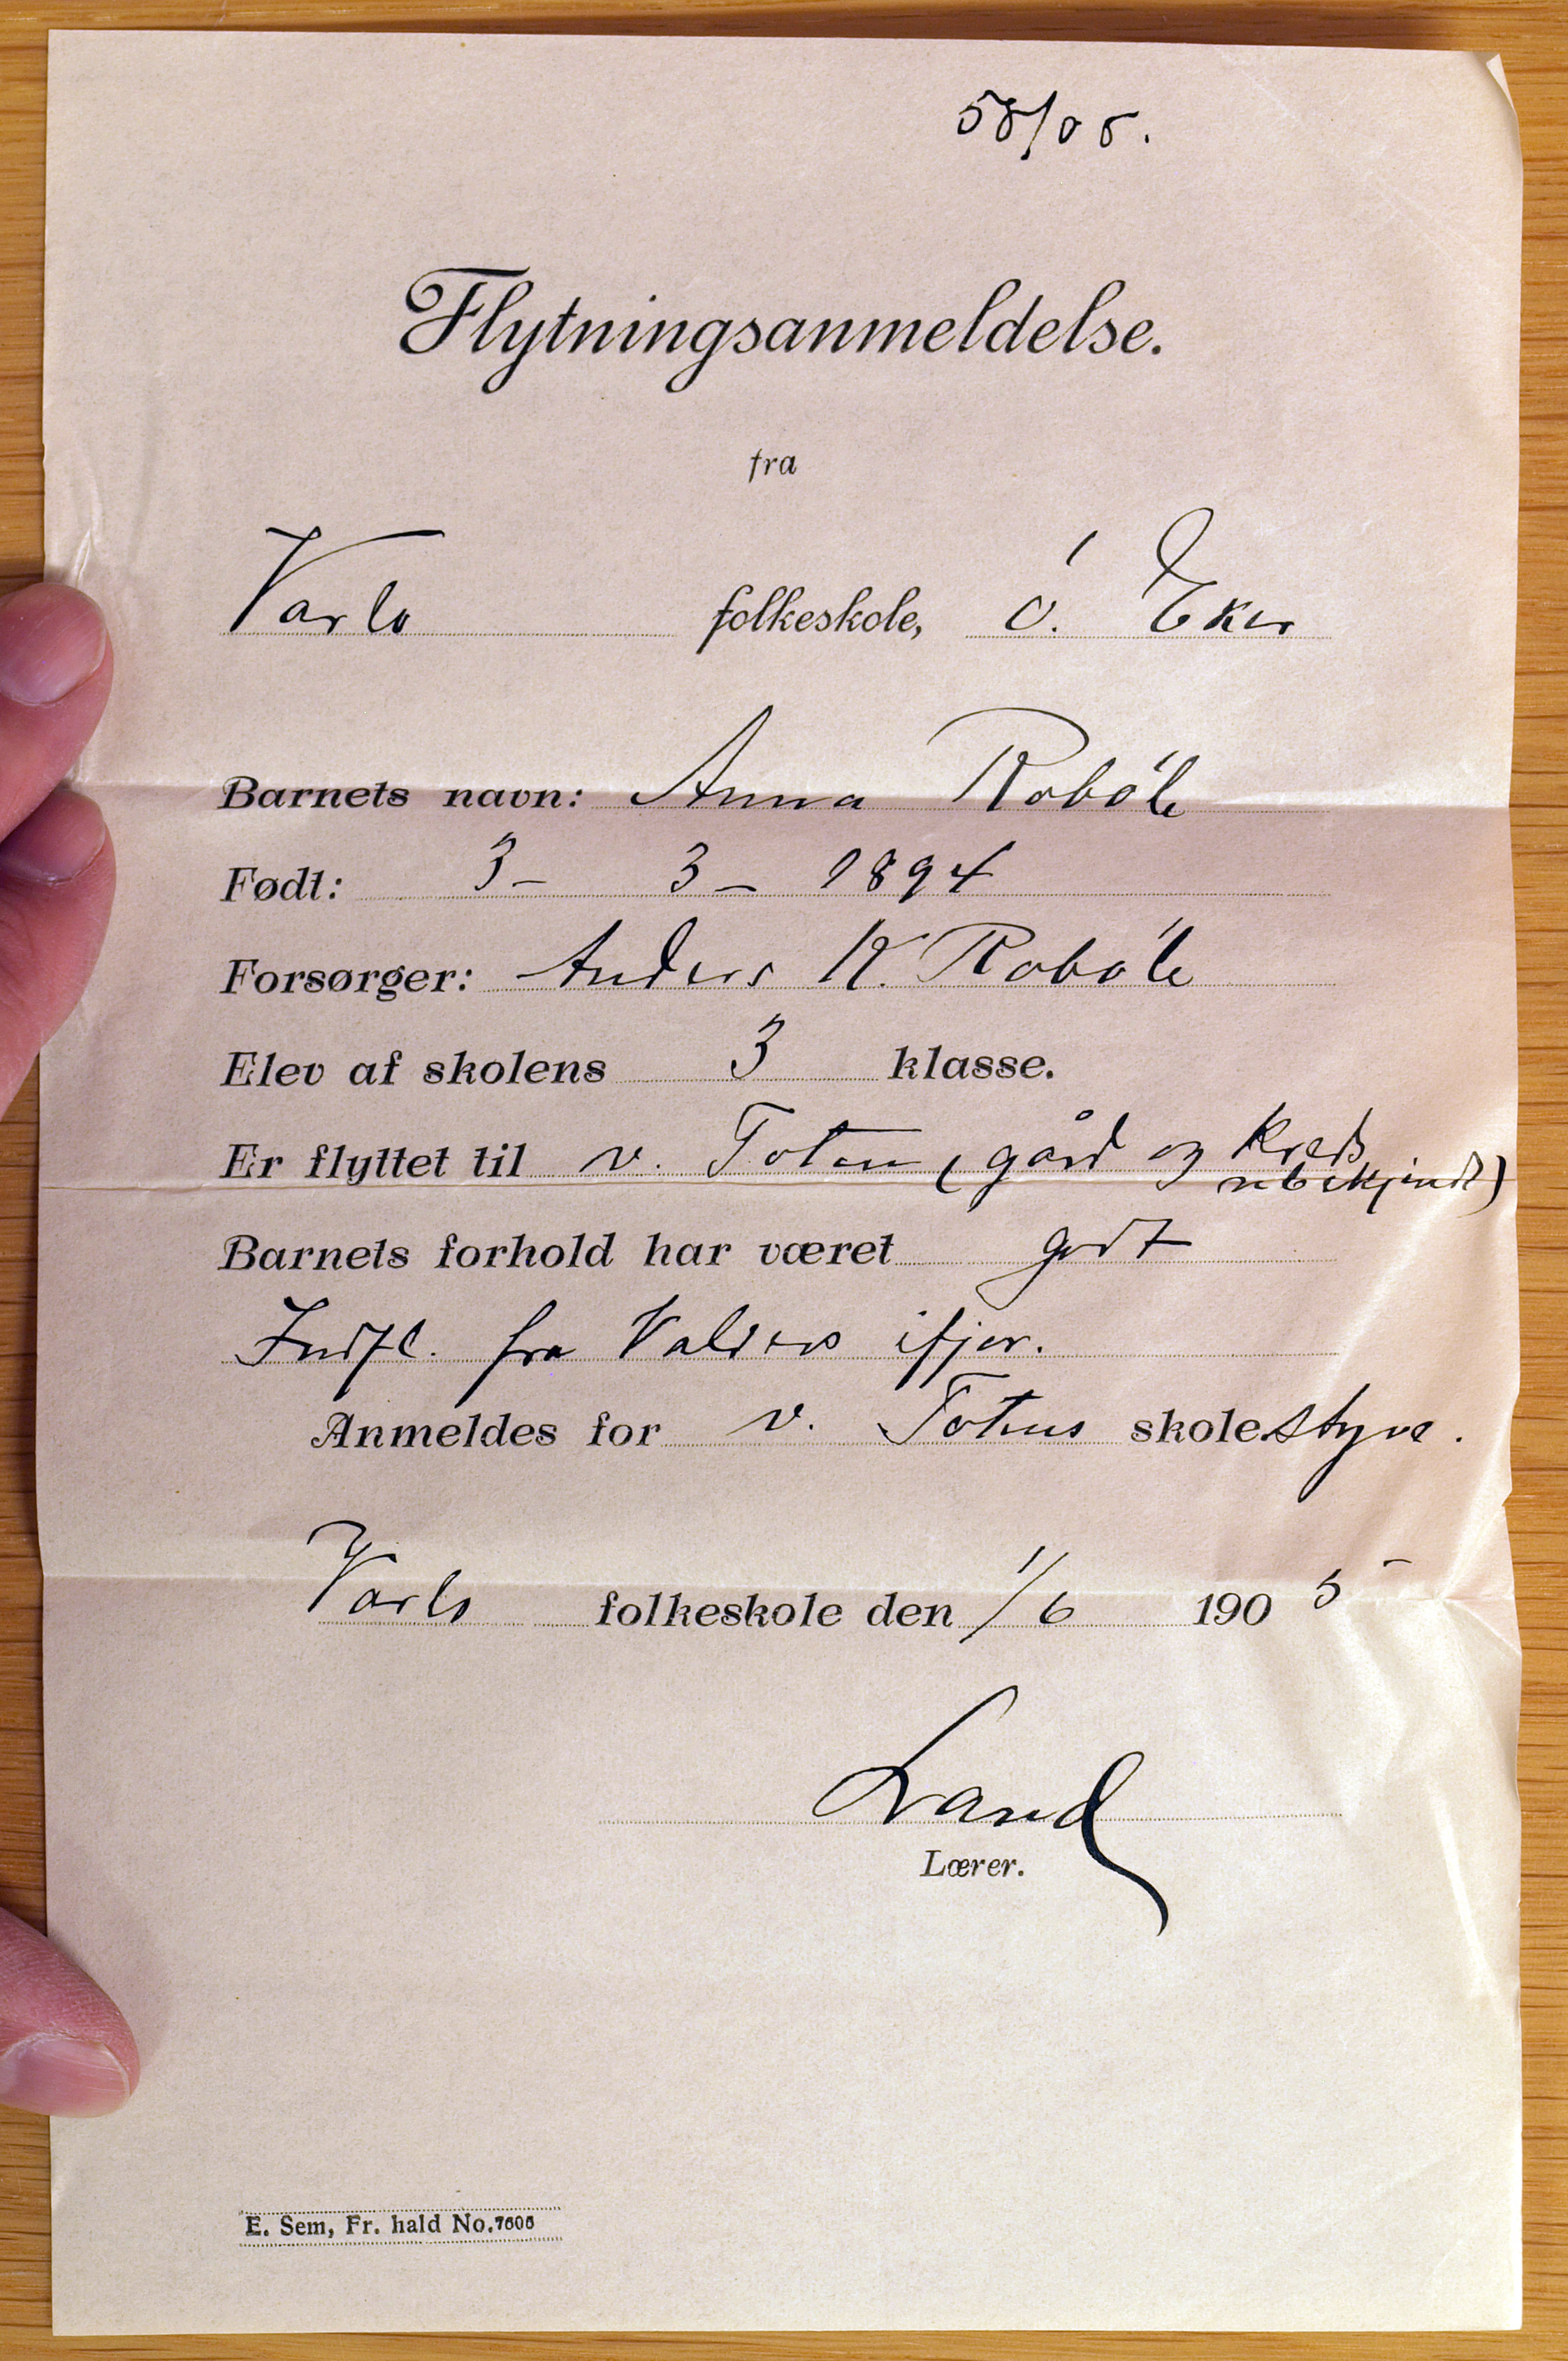 58/05.
Flytningsanmeldelse.
fra
Varlo folkeskole, Ó. Eker
Barnets navn: Anna Robóle
Født: 3- 3- 1894
Forsørger: Anders K. Robóle
Elev af skolens 3 klasse.
Er flyttet til v. Toten (gård og kreds
ubekjendt)
Barnets forhold har været godt
Indfl. fra Valders ifjor.
Anmeldes for v. Totens skolestyre.
Varlo folkeskole den 1/6 1905
Land
Lærer.
E. Sem, Fr.hald No.7606